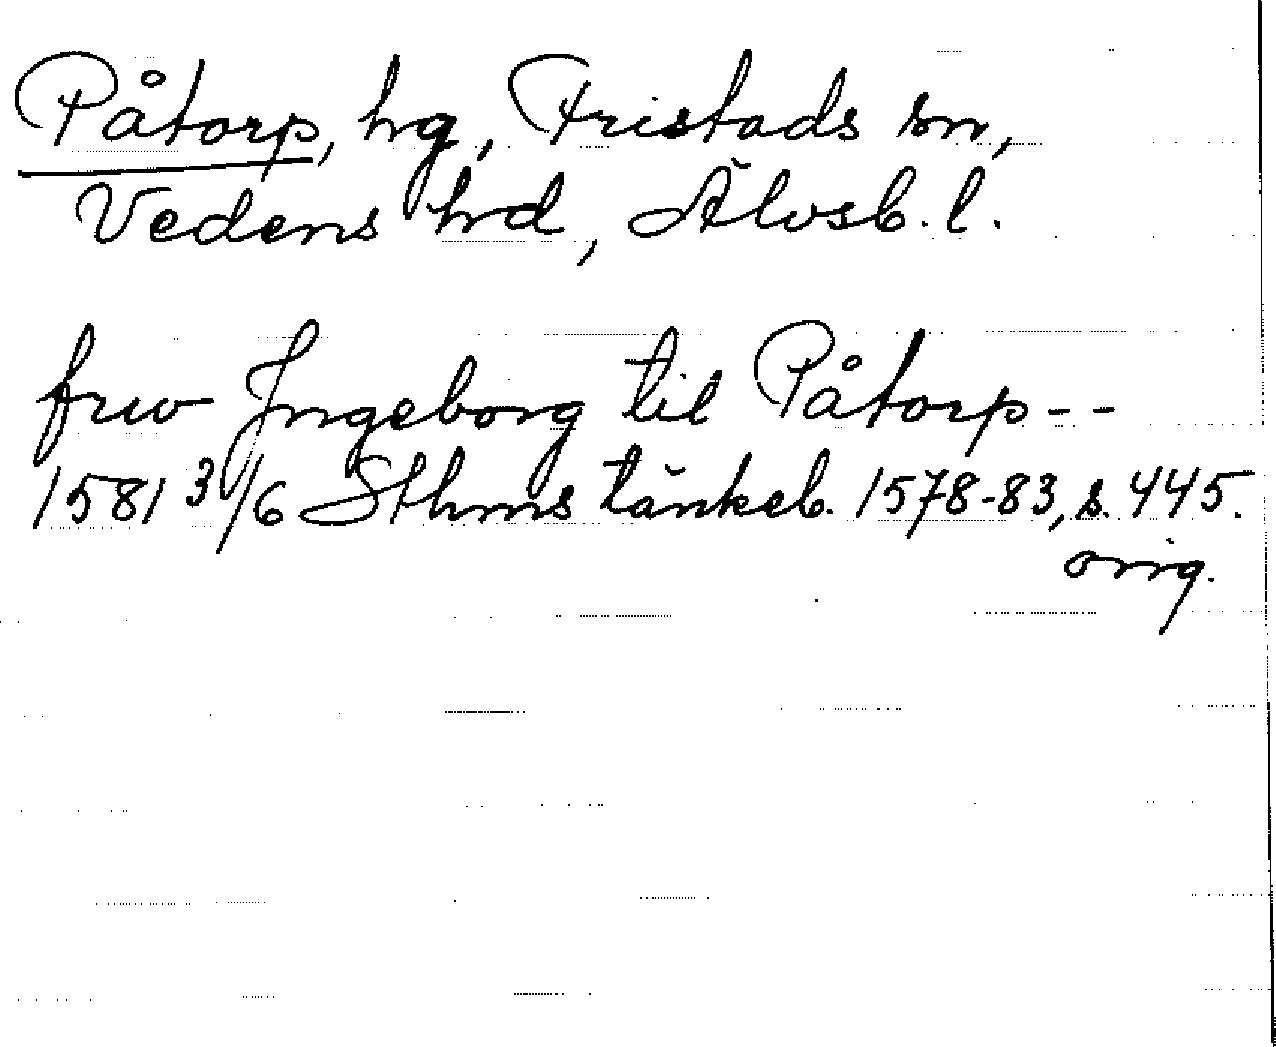 Påtorp, hg, Fristads sn,
Vedens hrd, Älvsb. l.
frw Jngeborg til Påtorp - -
1581 3/6 Sthms tänkeb. 1578-83, s. 445.
orig.